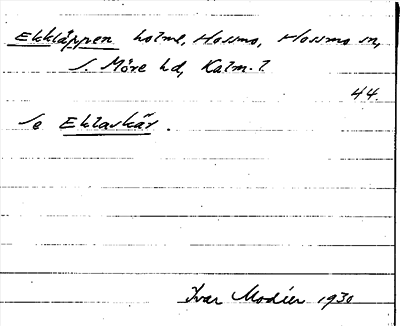 Ekkläppen holme, Hossmo, Hossmo sn,
S. Möre hd, Kalm. l.
44
Se Eklaskär.
Ivar Modéer 1930